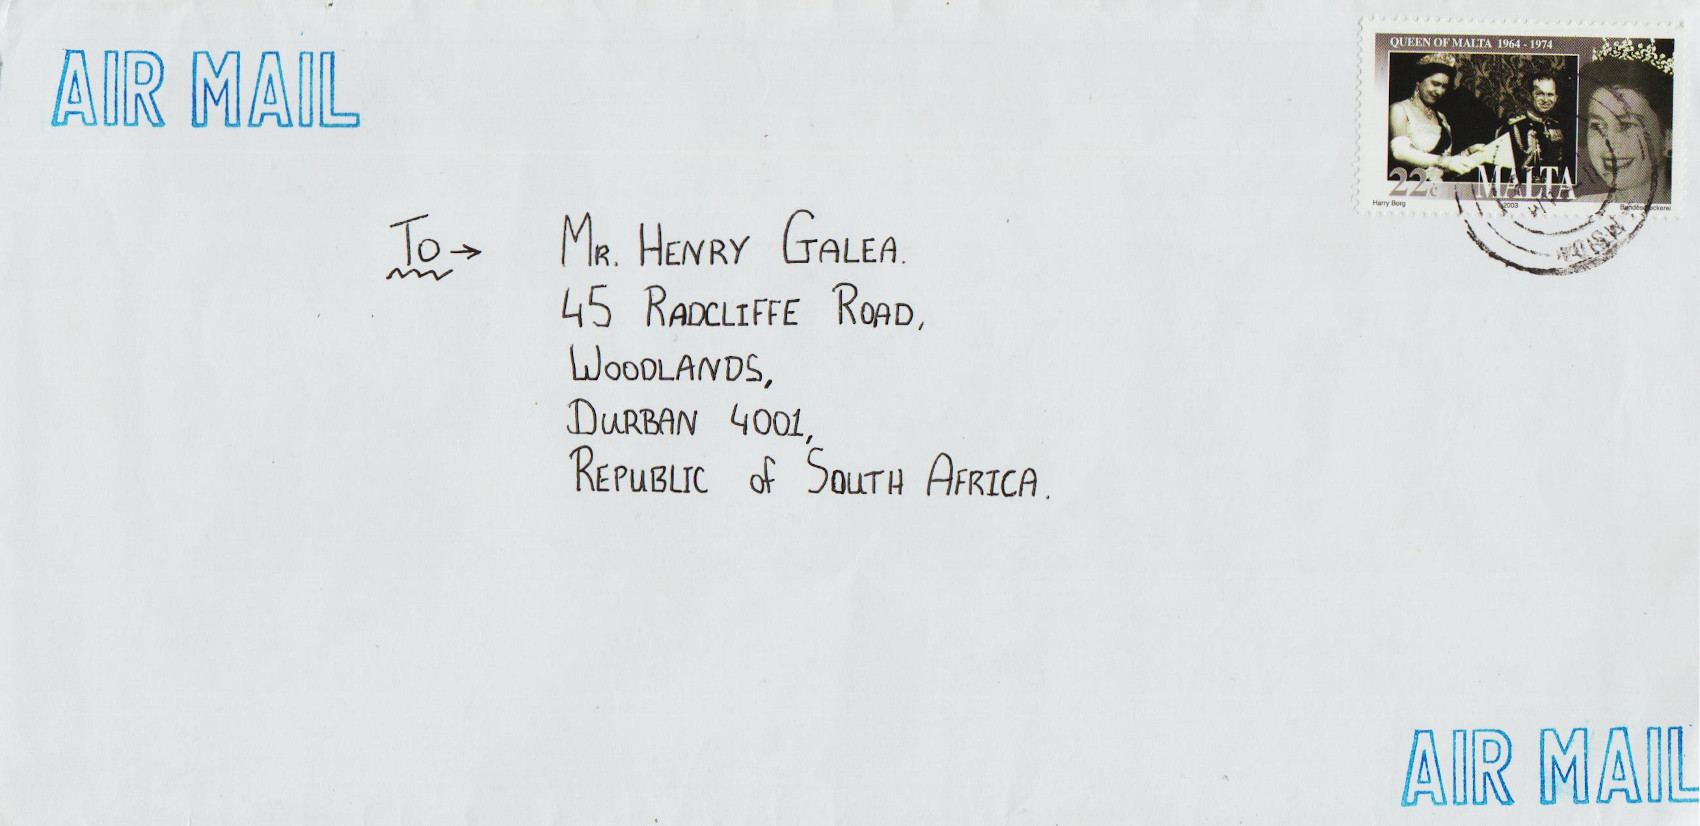 AIR MAIL
QUEEN OF MALTA 1964 - 1974
22c MALTA
Harry Borg 2003
To → Mr. Henry Galea.
45 Radcliffe Road,
Woodlands,
Durban 4001,
Republic of South Africa.
AIR MAIL